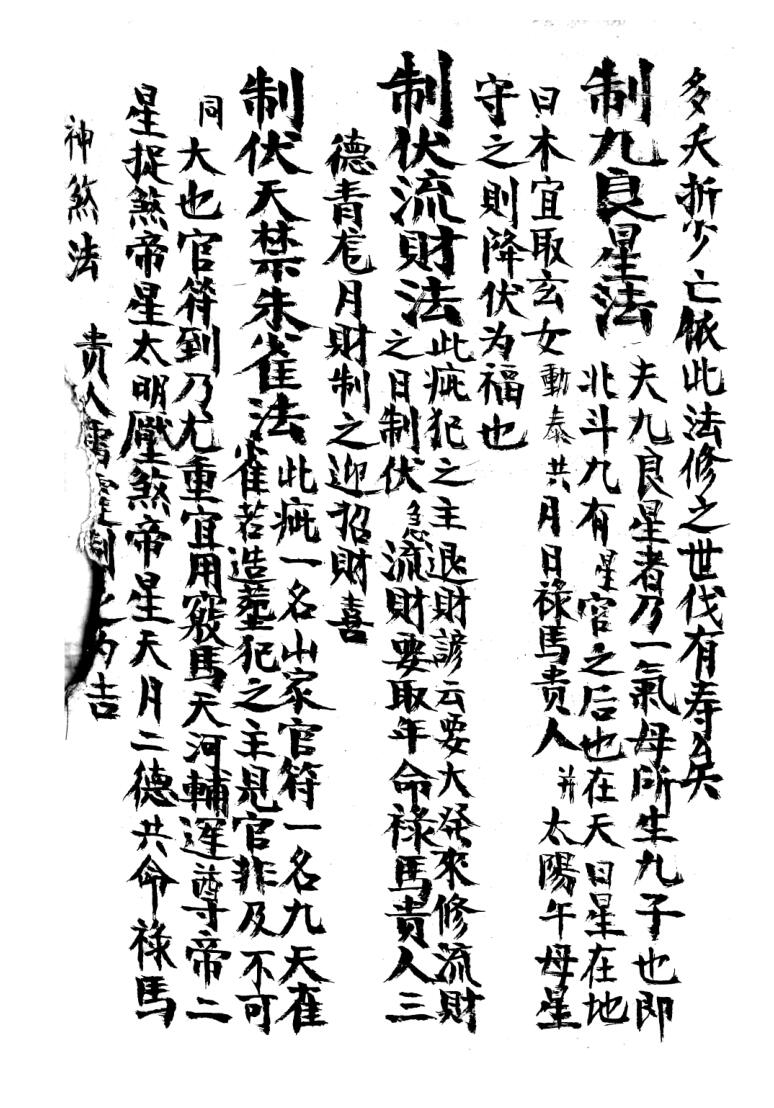 多夭折少亡依此法修之世伐有寿矣
制九良星法
夫九良星者乃一氣母所生九子也即
北斗九有星宫之后也在天曰星在地
曰木宜取玄女動泰共月日祿馬贵人并太陽午母星
守之则降伏为福也
制伏流財法
此疵犯之主退財諺云要大発來修流財
之日制伏急流財要取年命祿馬贵人三
德青庖月財制之迎招財喜
制伏天禁朱雀法
此疵一名山家官符一名九天雀
雀若造塟犯之主見官非及不可
同大也官符到乃尤重宜用竅馬天河輔運尊帝二
星捉煞帝星太明壓煞帝星天月二德共命祿馬
神煞法 贵人 制之为吉